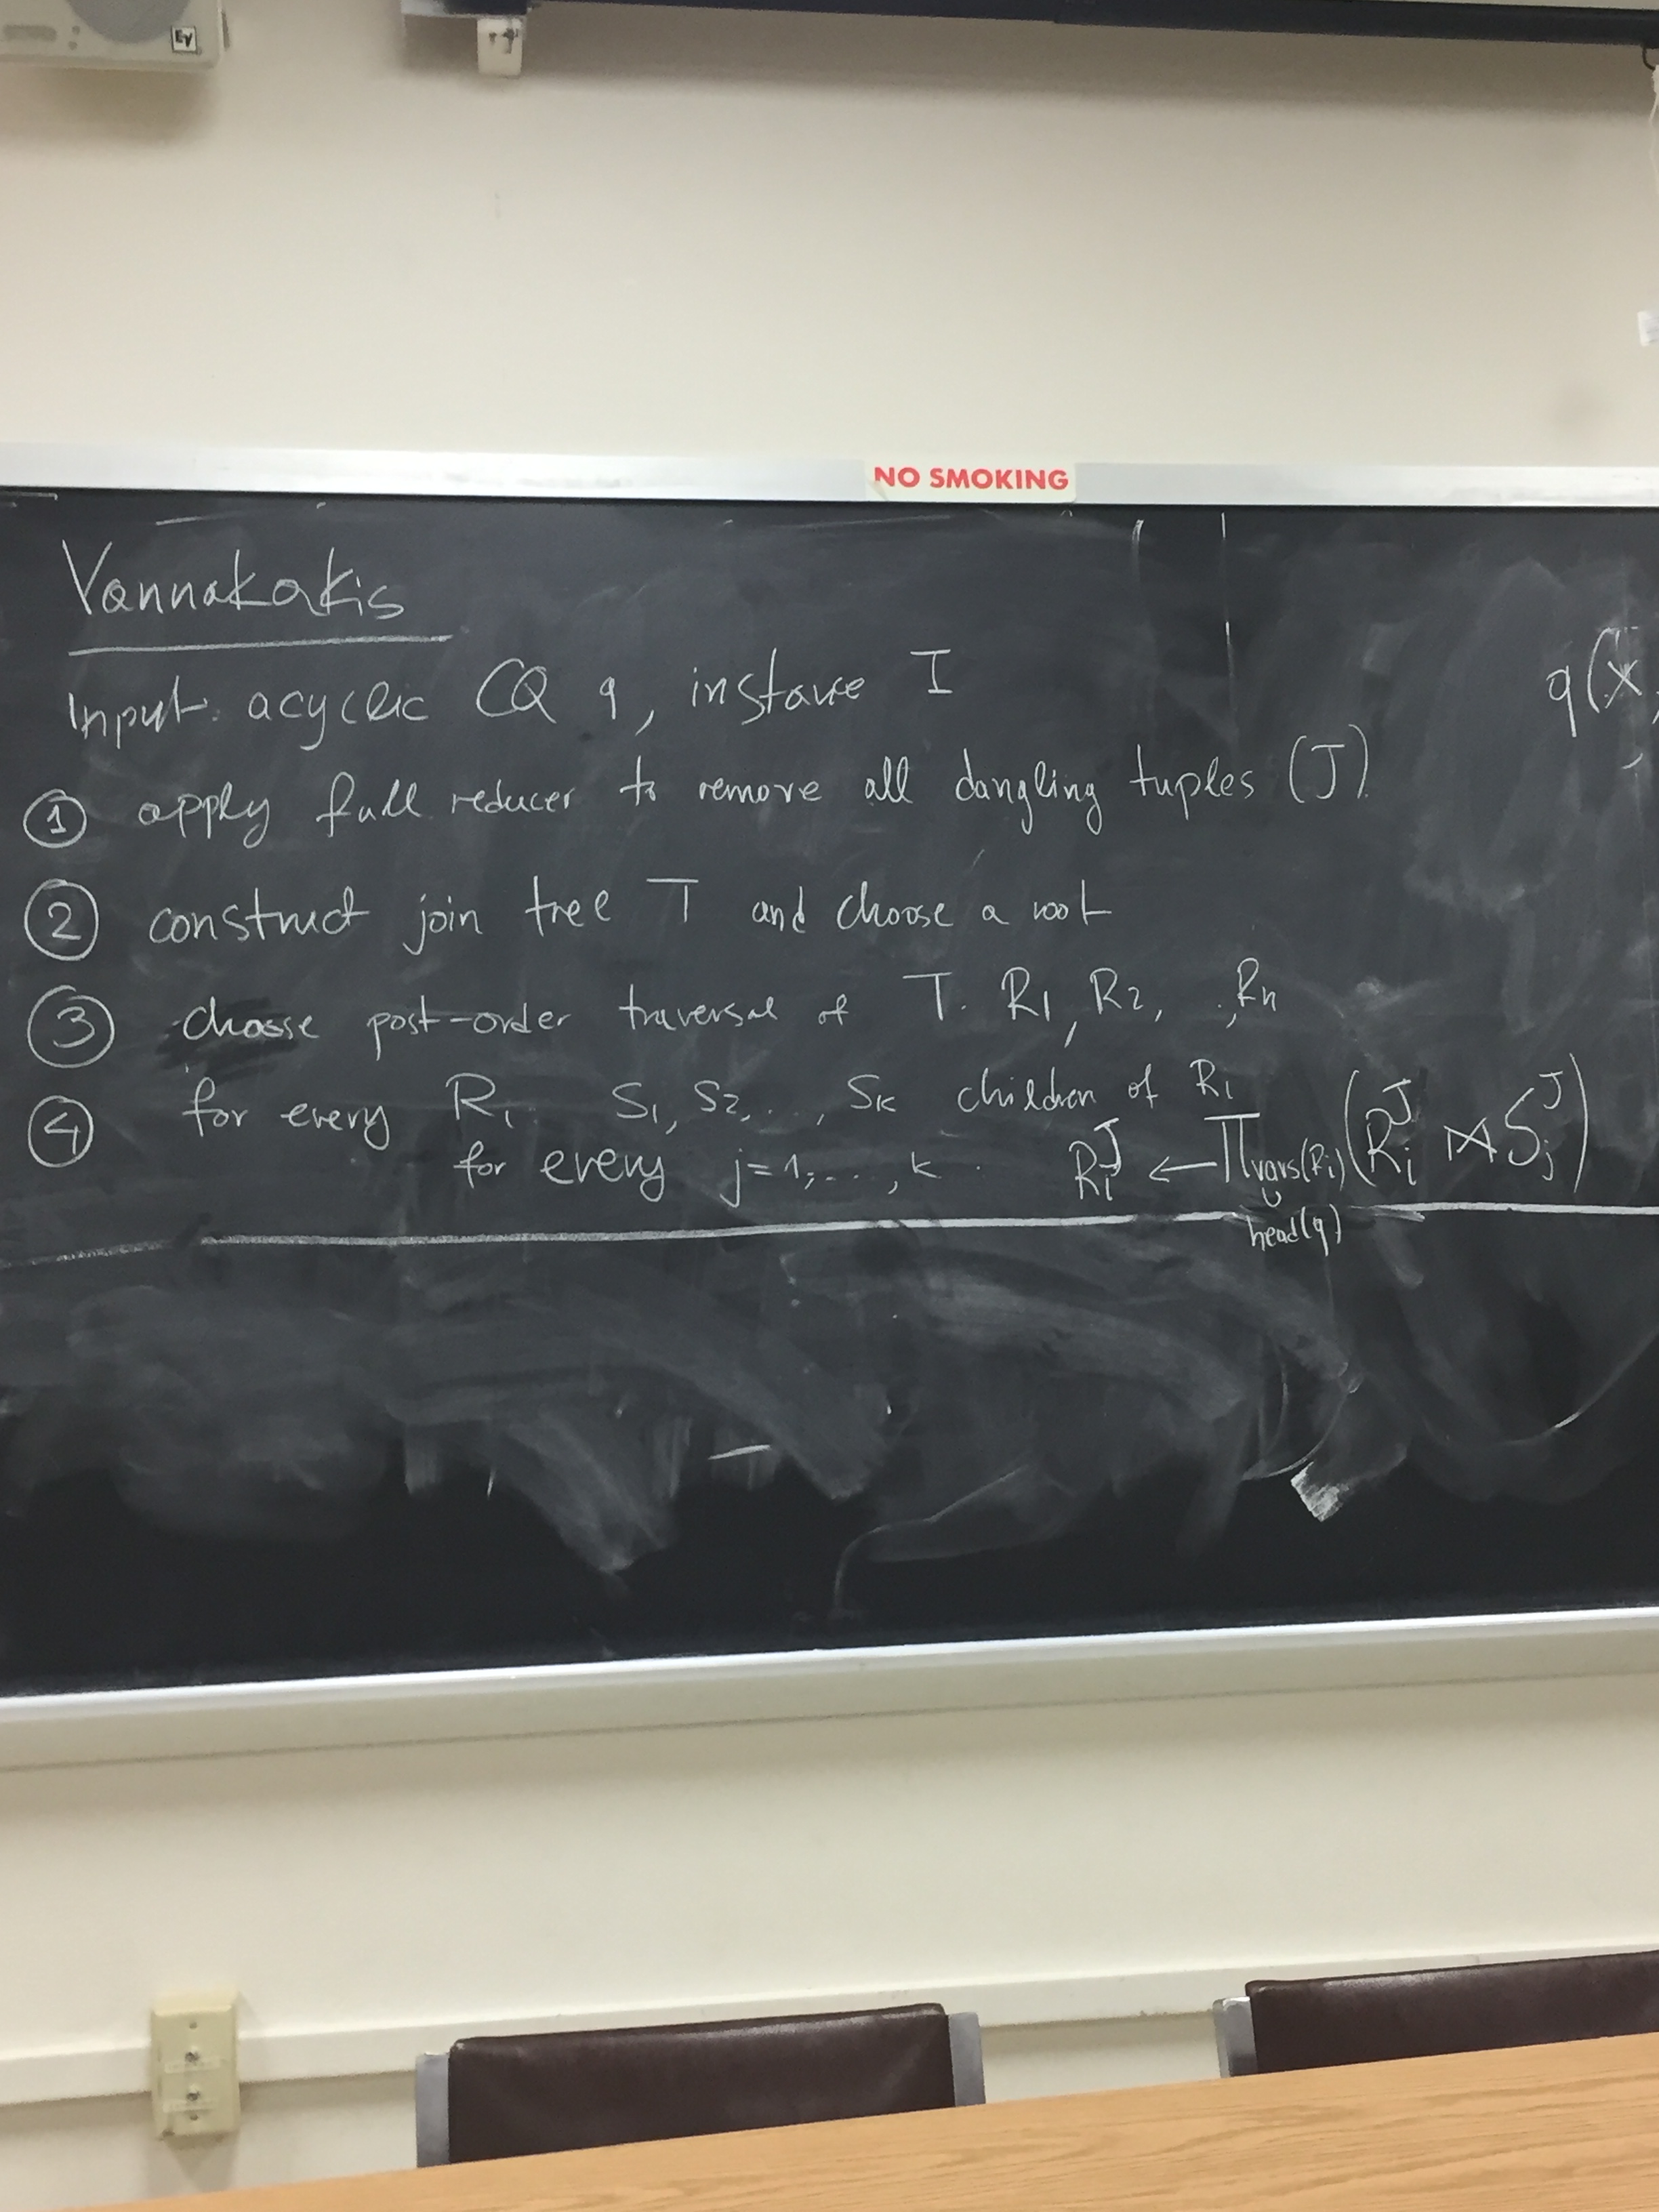 EV
NO SMOKING
Yannakakis
Input: acyclic CQ q, instance I
q(x,
① apply full reducer to remove all dangling tuples (J)
② construct join tree T and choose a root
③ choose post-order traversal of T. R1, R2, .., Rn
④ for every Ri S1, S2, ..., Sk children of Ri
for every j=1,...,k. Ri^J ← Π vars(Ri) ∪ head(q) (Ri^J ⋈ Sj^J)